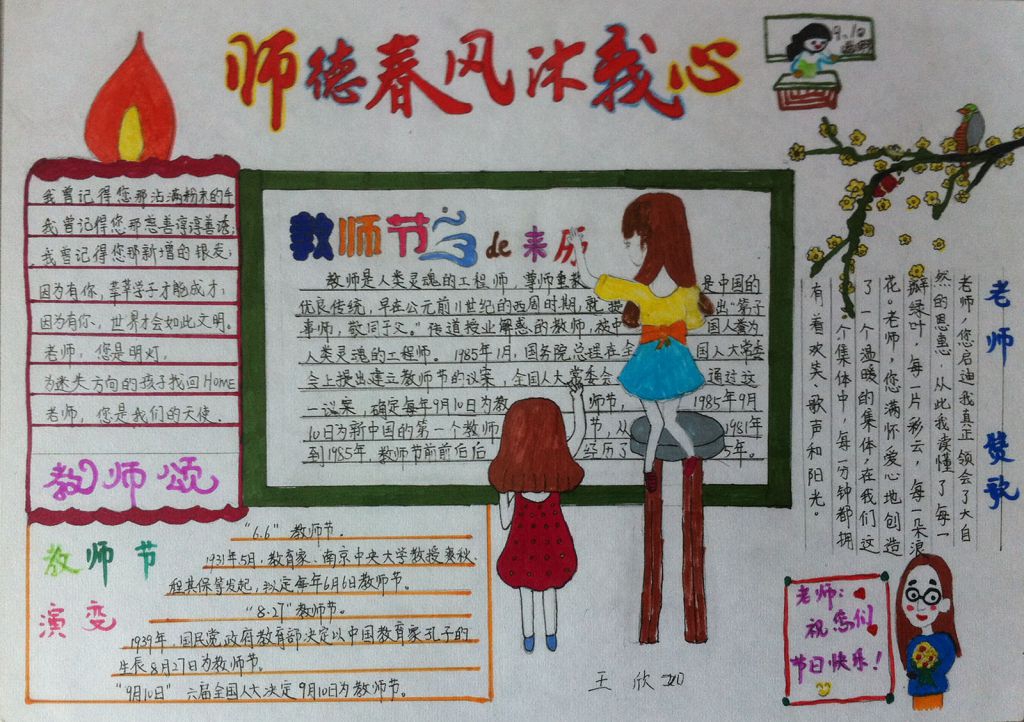 师德春风沐我心
9.10
我曾记得您那沾满粉末的手
我曾记得您那慈善谆谆善诱;
我曾记得您那新增的银友;
因为有你,莘莘学子才能成才;
因为有你、世界才会如此文明。
老师,您是明灯,
为迷失方向的孩子找回HOME
老师,您是我们的天使.
教师颂
教师节 de 来历
教师是人类灵魂的工程师,尊师重教 是中国的
优良传统,早在公元前11世纪的西周时期,就提 出“弟子
事师,敬同于父。”传道授业解惑的教师,被中 国人誉为
人类灵魂的工程师。1985年1月,国务院总理在全 国人大常委
会上提出建立教师节的议案,全国人大常委会 通过这
一议案,确定每年9月10日为教 师节, 1985年9月
10日为新中国的第一个教师 节,从 1981年
到1985年,教师节前前后后 经历了 5年。
教师节
演变
“6.6”教师节。
1931年5月,教育家、南京中央大学教授袤秋、
程其保等发起,拟定每年6月6日教师节。
“8.27”教师节。
1939年,国民党政府教育部决定以中国教育家孔子的
生辰8月27日为教师节。
“9月10日”六届全国人大决定9月10日为教师节。
老师 赞歌
老师,您启迪我真正领会了大自
然的恩惠,从此我读懂了每一
瓣绿叶,每一片彩云,每一朵浪
花。老师,您满怀爱心地创造
了一个温暖的集体,在我们这
个集体中,每一分钟都拥
有着欢笑、歌声和阳光。
老师:
祝您们
节日快乐!
王欣